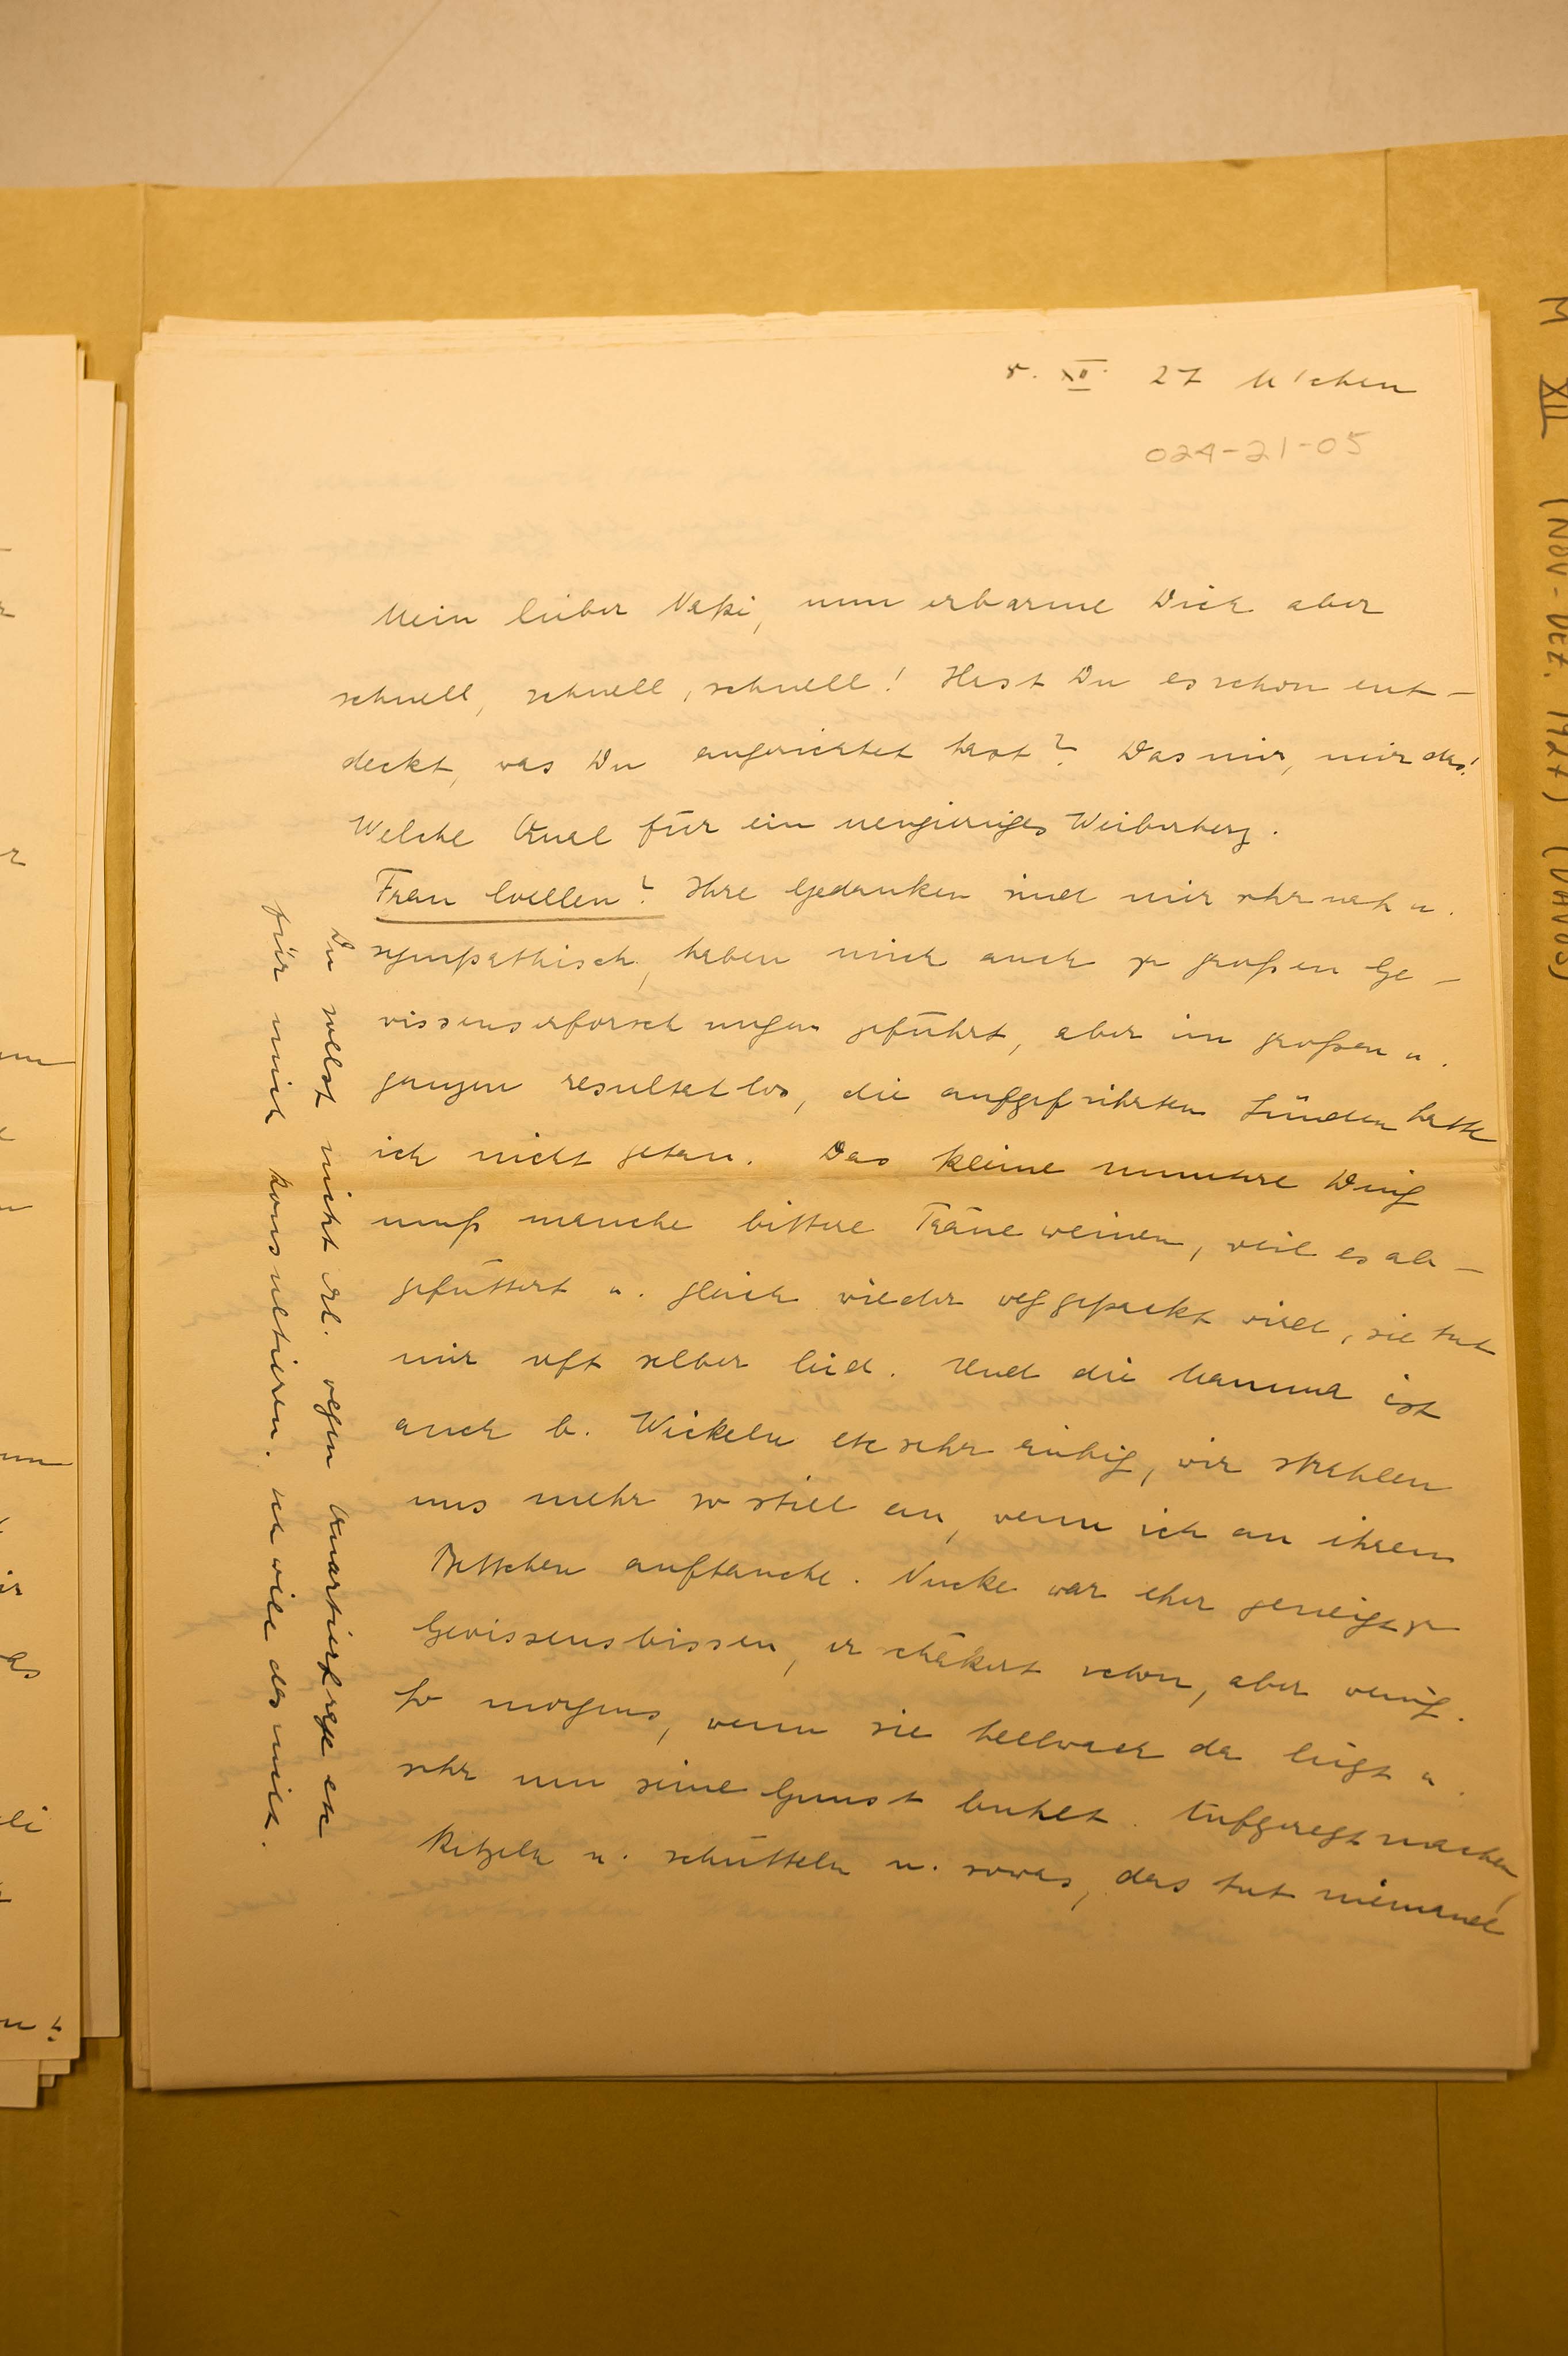 5. XII. 27 M'chen
024-21-05
Mein lieber Naki, nun erbarme Dich aber
schnell, schnell, schnell! Hast Du es schon ent-
deckt, was Du angerichtet hast? Das mir, mir das!
Welche Qual für ein neugieriges Weiberherz.
Frau Ihre Gedanken sind mir sehr nah u.
sympathisch, haben mich auch zu großen Ge-
wissenserforschungen geführt, aber im großen u.
ganzen resultatlos, die aufgeführten Sünden hatte
ich nicht getan. Das kleine muntere Ding
muß manche bittere Träne weinen, weil es ab-
gefüttert u. gleich wieder weggepackt wird, sie tut
mir oft selber leid. Und die Mamma ist
auch b. Wickeln etc sehr ruhig, wir strahlen
uns mehr so still an, wenn ich an ihrem
Bettchen auftauche. Nucke war eher geneigt zu
Gewissensbissen, er schäkert schon, aber wenig.
So morgens, wenn sie hellwach da liegt u.
sehr um seine Gunst buhlt. Aufgeregt machen,
kitzeln u. schütteln u. sowas, das tut niemand
Du sollst nicht wegen Quartierfrage etc
für mich konsultieren. Ich will das nicht.
M XII (NOV-DEZ. 1927) (DAVOS)